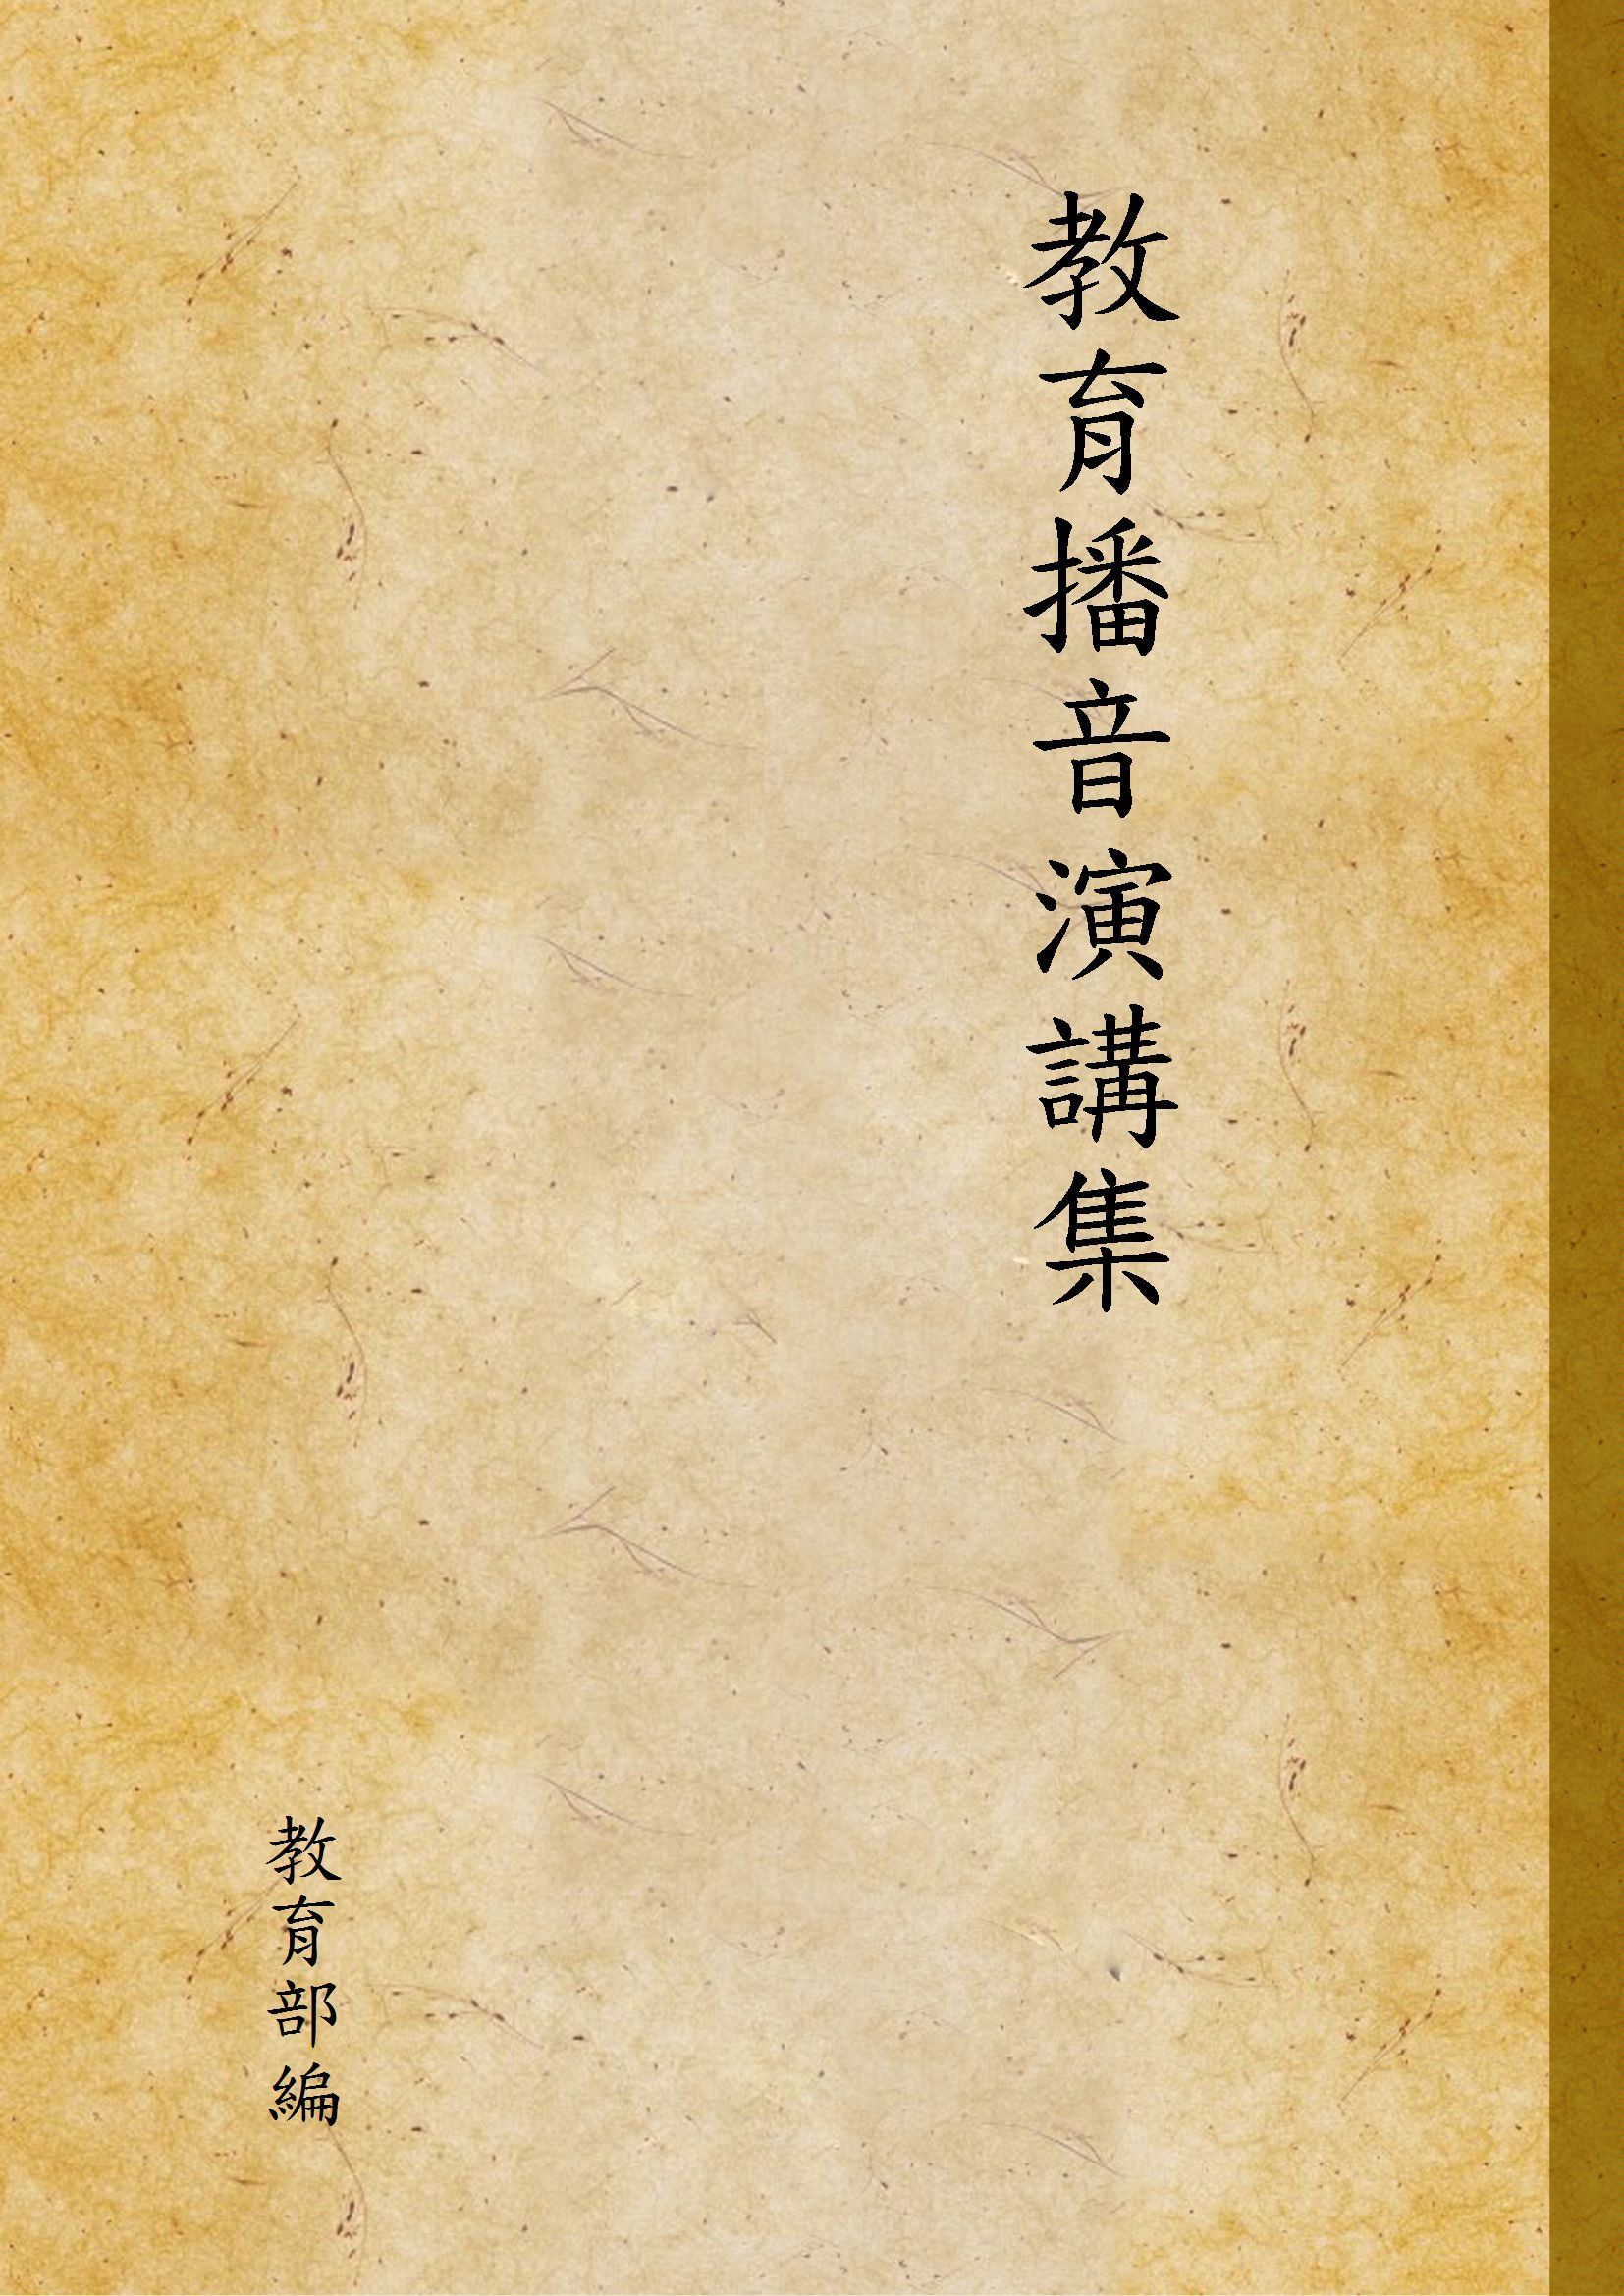 教育播音演講集
教育部編